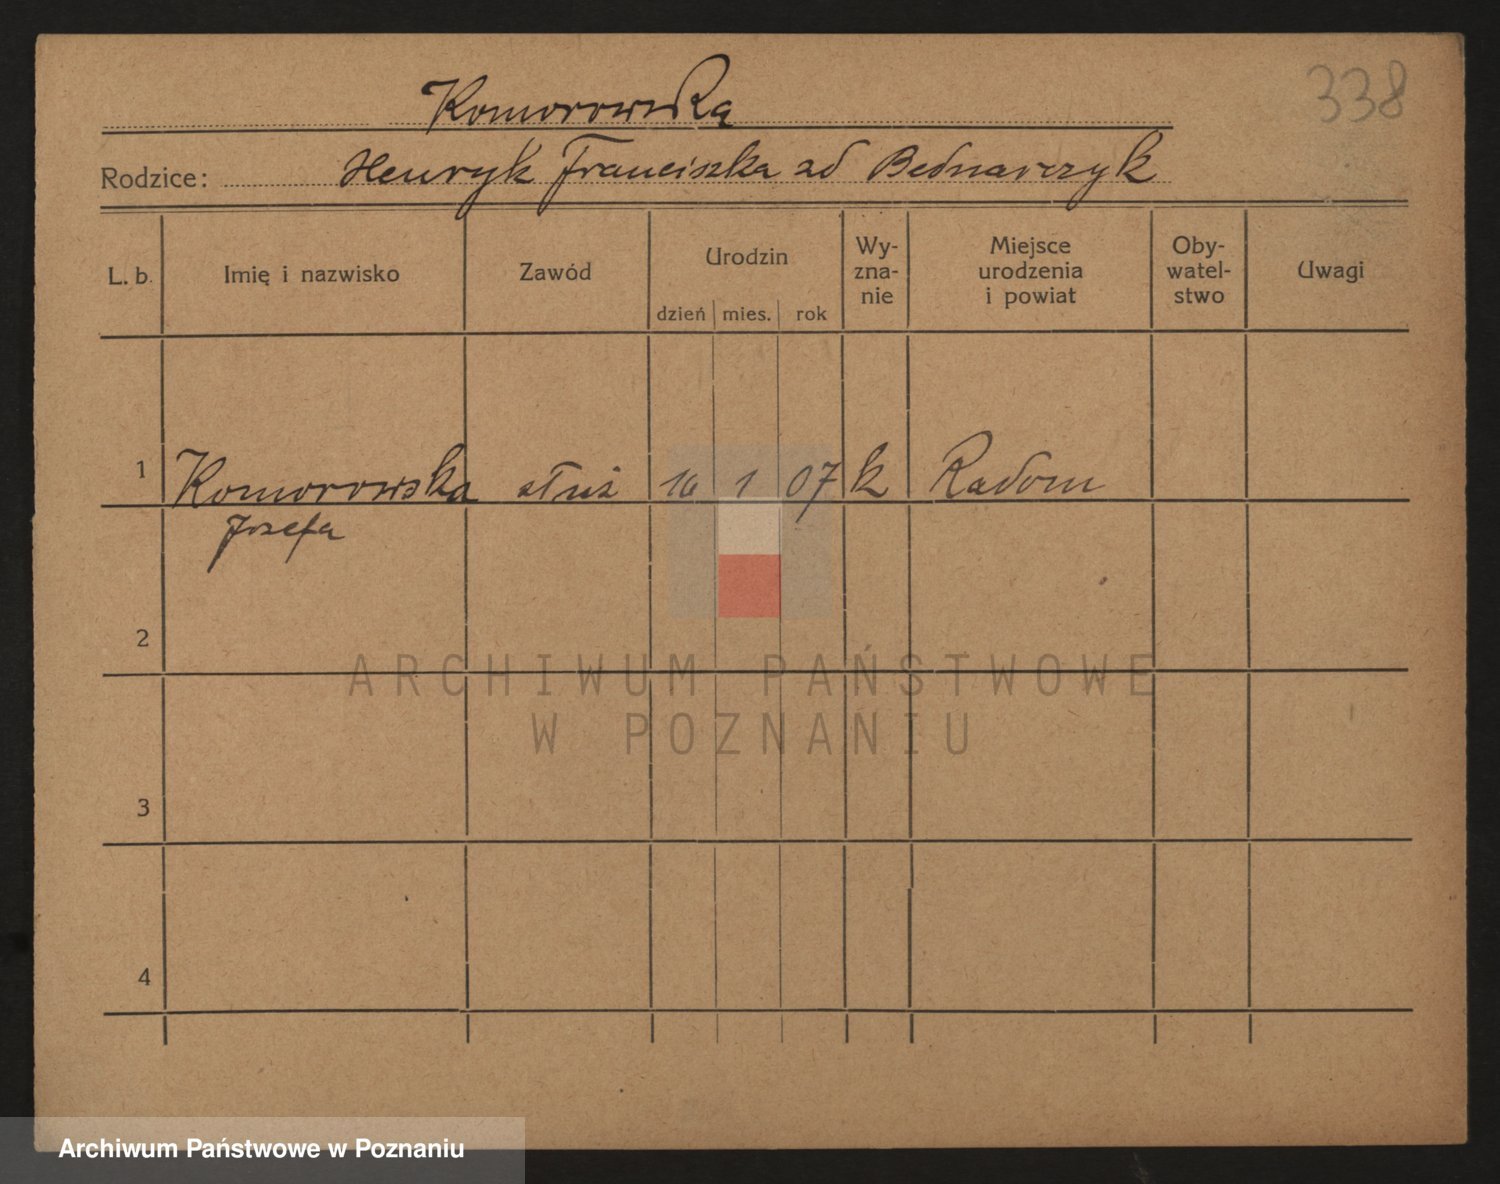 338
Komorowska
Rodzice: Henryk Franciszka zd Bednarczyk
L. b. Imię i nazwisko Zawód Urodzin Wy-zna-nie Miejsce urodzenia i powiat Oby-watel-stwo Uwagi
dzień mies. rok
1 Komorowska służ 16 1 07 k Radom
Józefa
2
ARCHIWUM PAŃSTWOWE
W POZNANIU
3
4
Archiwum Państwowe w Poznaniu